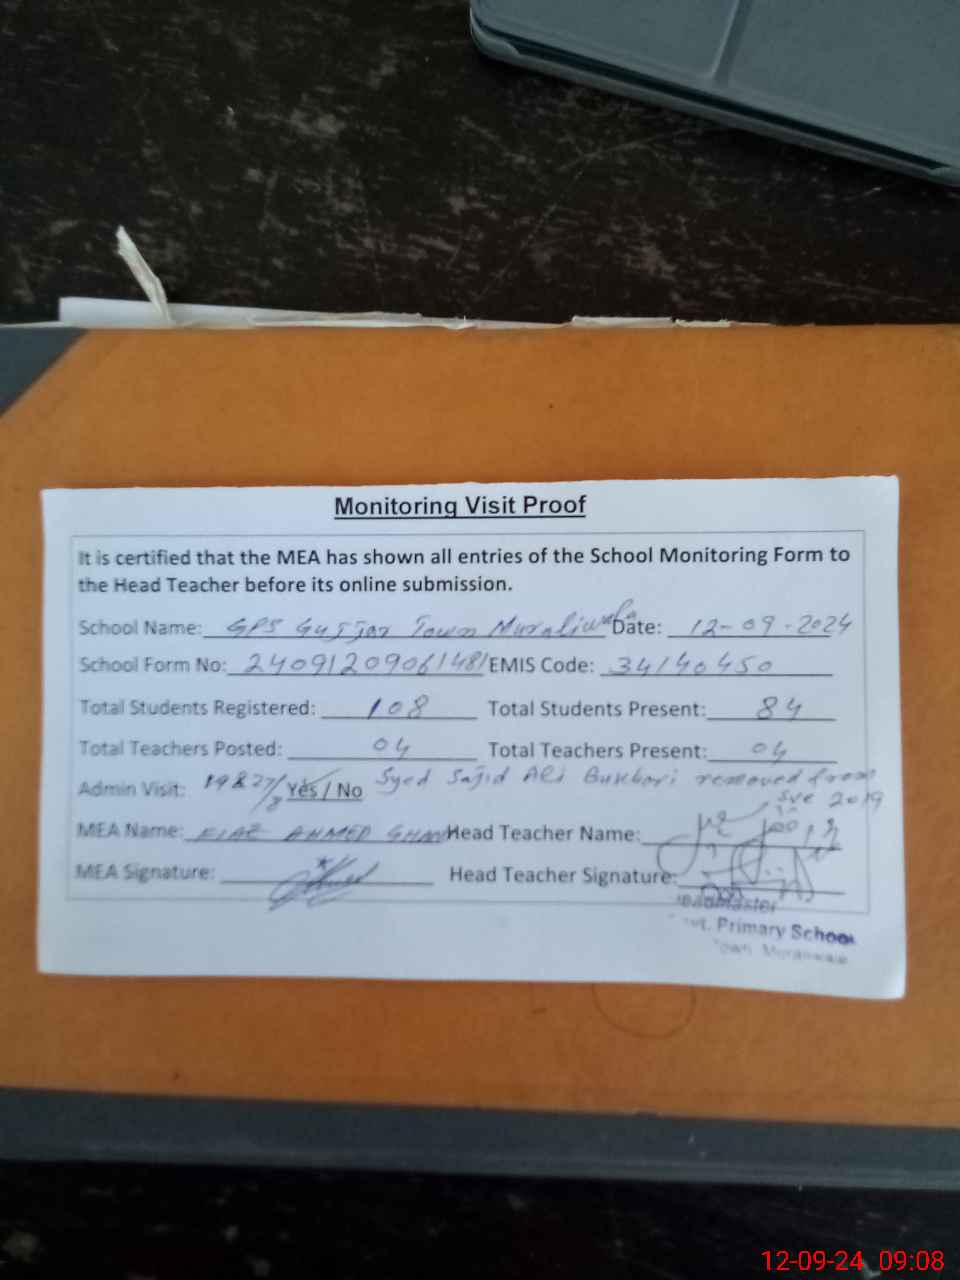 Monitoring Visit Proof
It is certified that the MEA has shown all entries of the School Monitoring Form to
the Head Teacher before its online submission.
School Name: GPS Gujjar Town Muraliwala Date: 12-09-2024
School Form No: 2409120906148 EMIS Code: 34140450
Total Students Registered: 108 Total Students Present: 84
Total Teachers Posted: 04 Total Teachers Present: 04
Admin Visit: 19 & 27/8 Yes / No Syed Sajid Ali Bukhari removed from
sve 2019
MEA Name: AHMED Head Teacher Name:
MEA Signature: Head Teacher Signature:
Headmaster
Govt. Primary School
Town Muraliwala
12-09-24 09:08